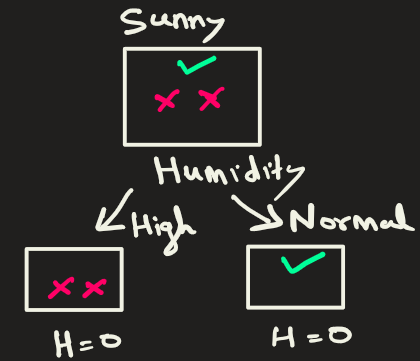 Sunny
Humidity
High
Normal
H=0
H=0